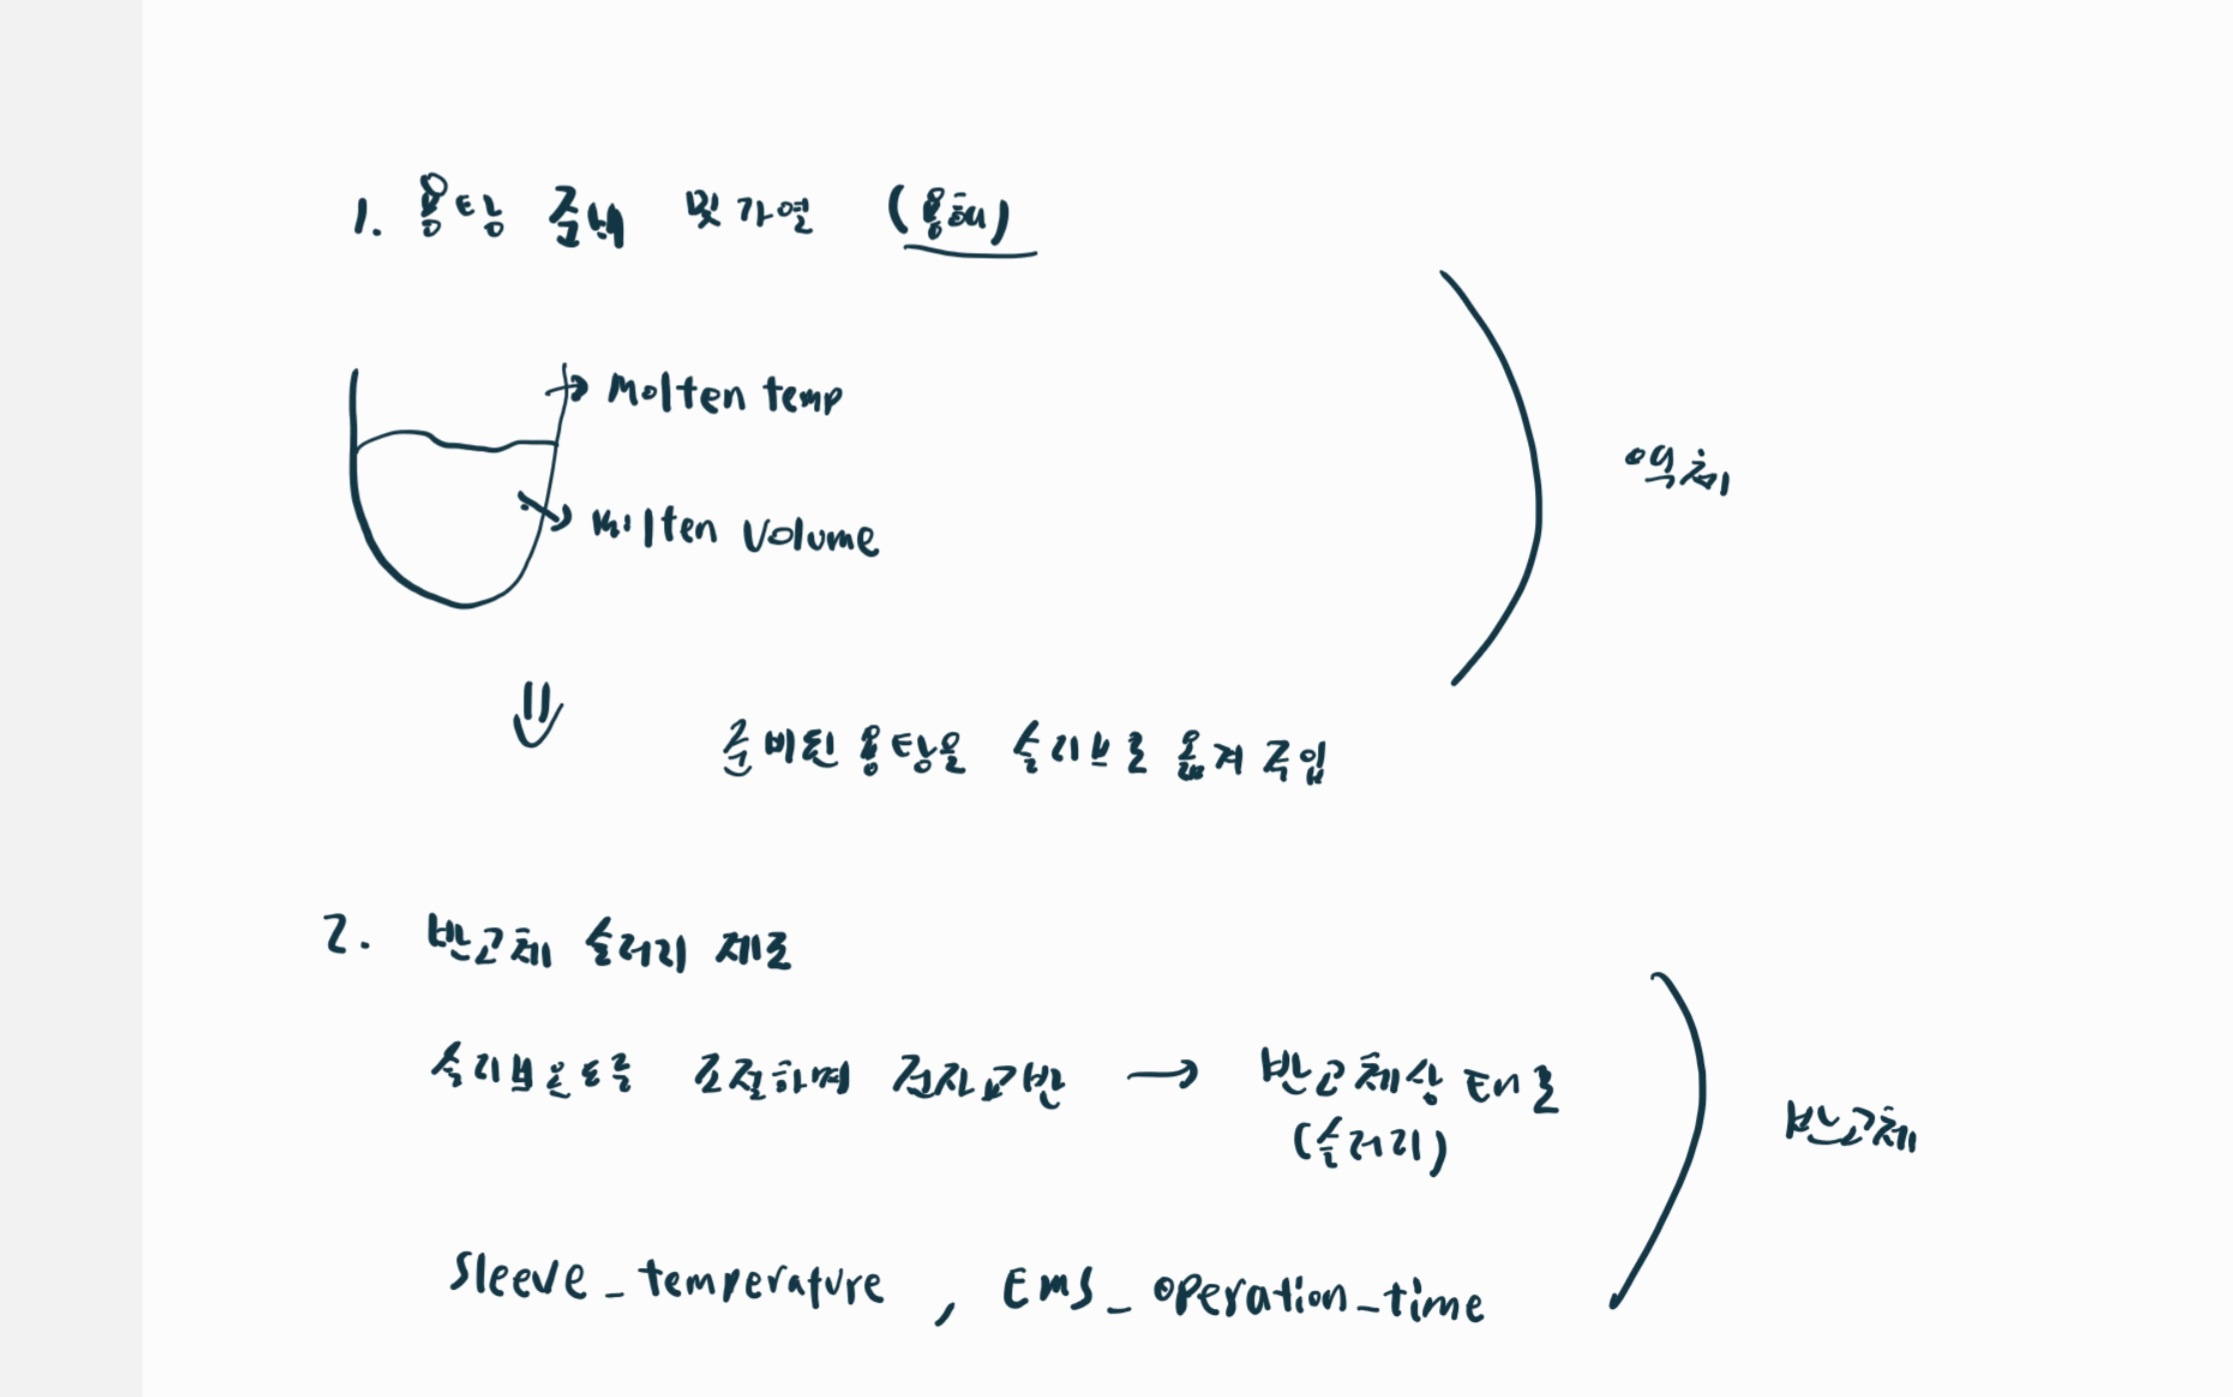 1. 용탕 준비 및 가열 (용해)
Molten temp
액체
Molten Volume
준비된 용탕을 슬리브로 옮겨 주입
2. 반고체 슬러리 제조
슬리브온도를 조절하며 전자교반 → 반고체상태로
(슬러리)
반고체
Sleeve_temperature , EMS_operation_time